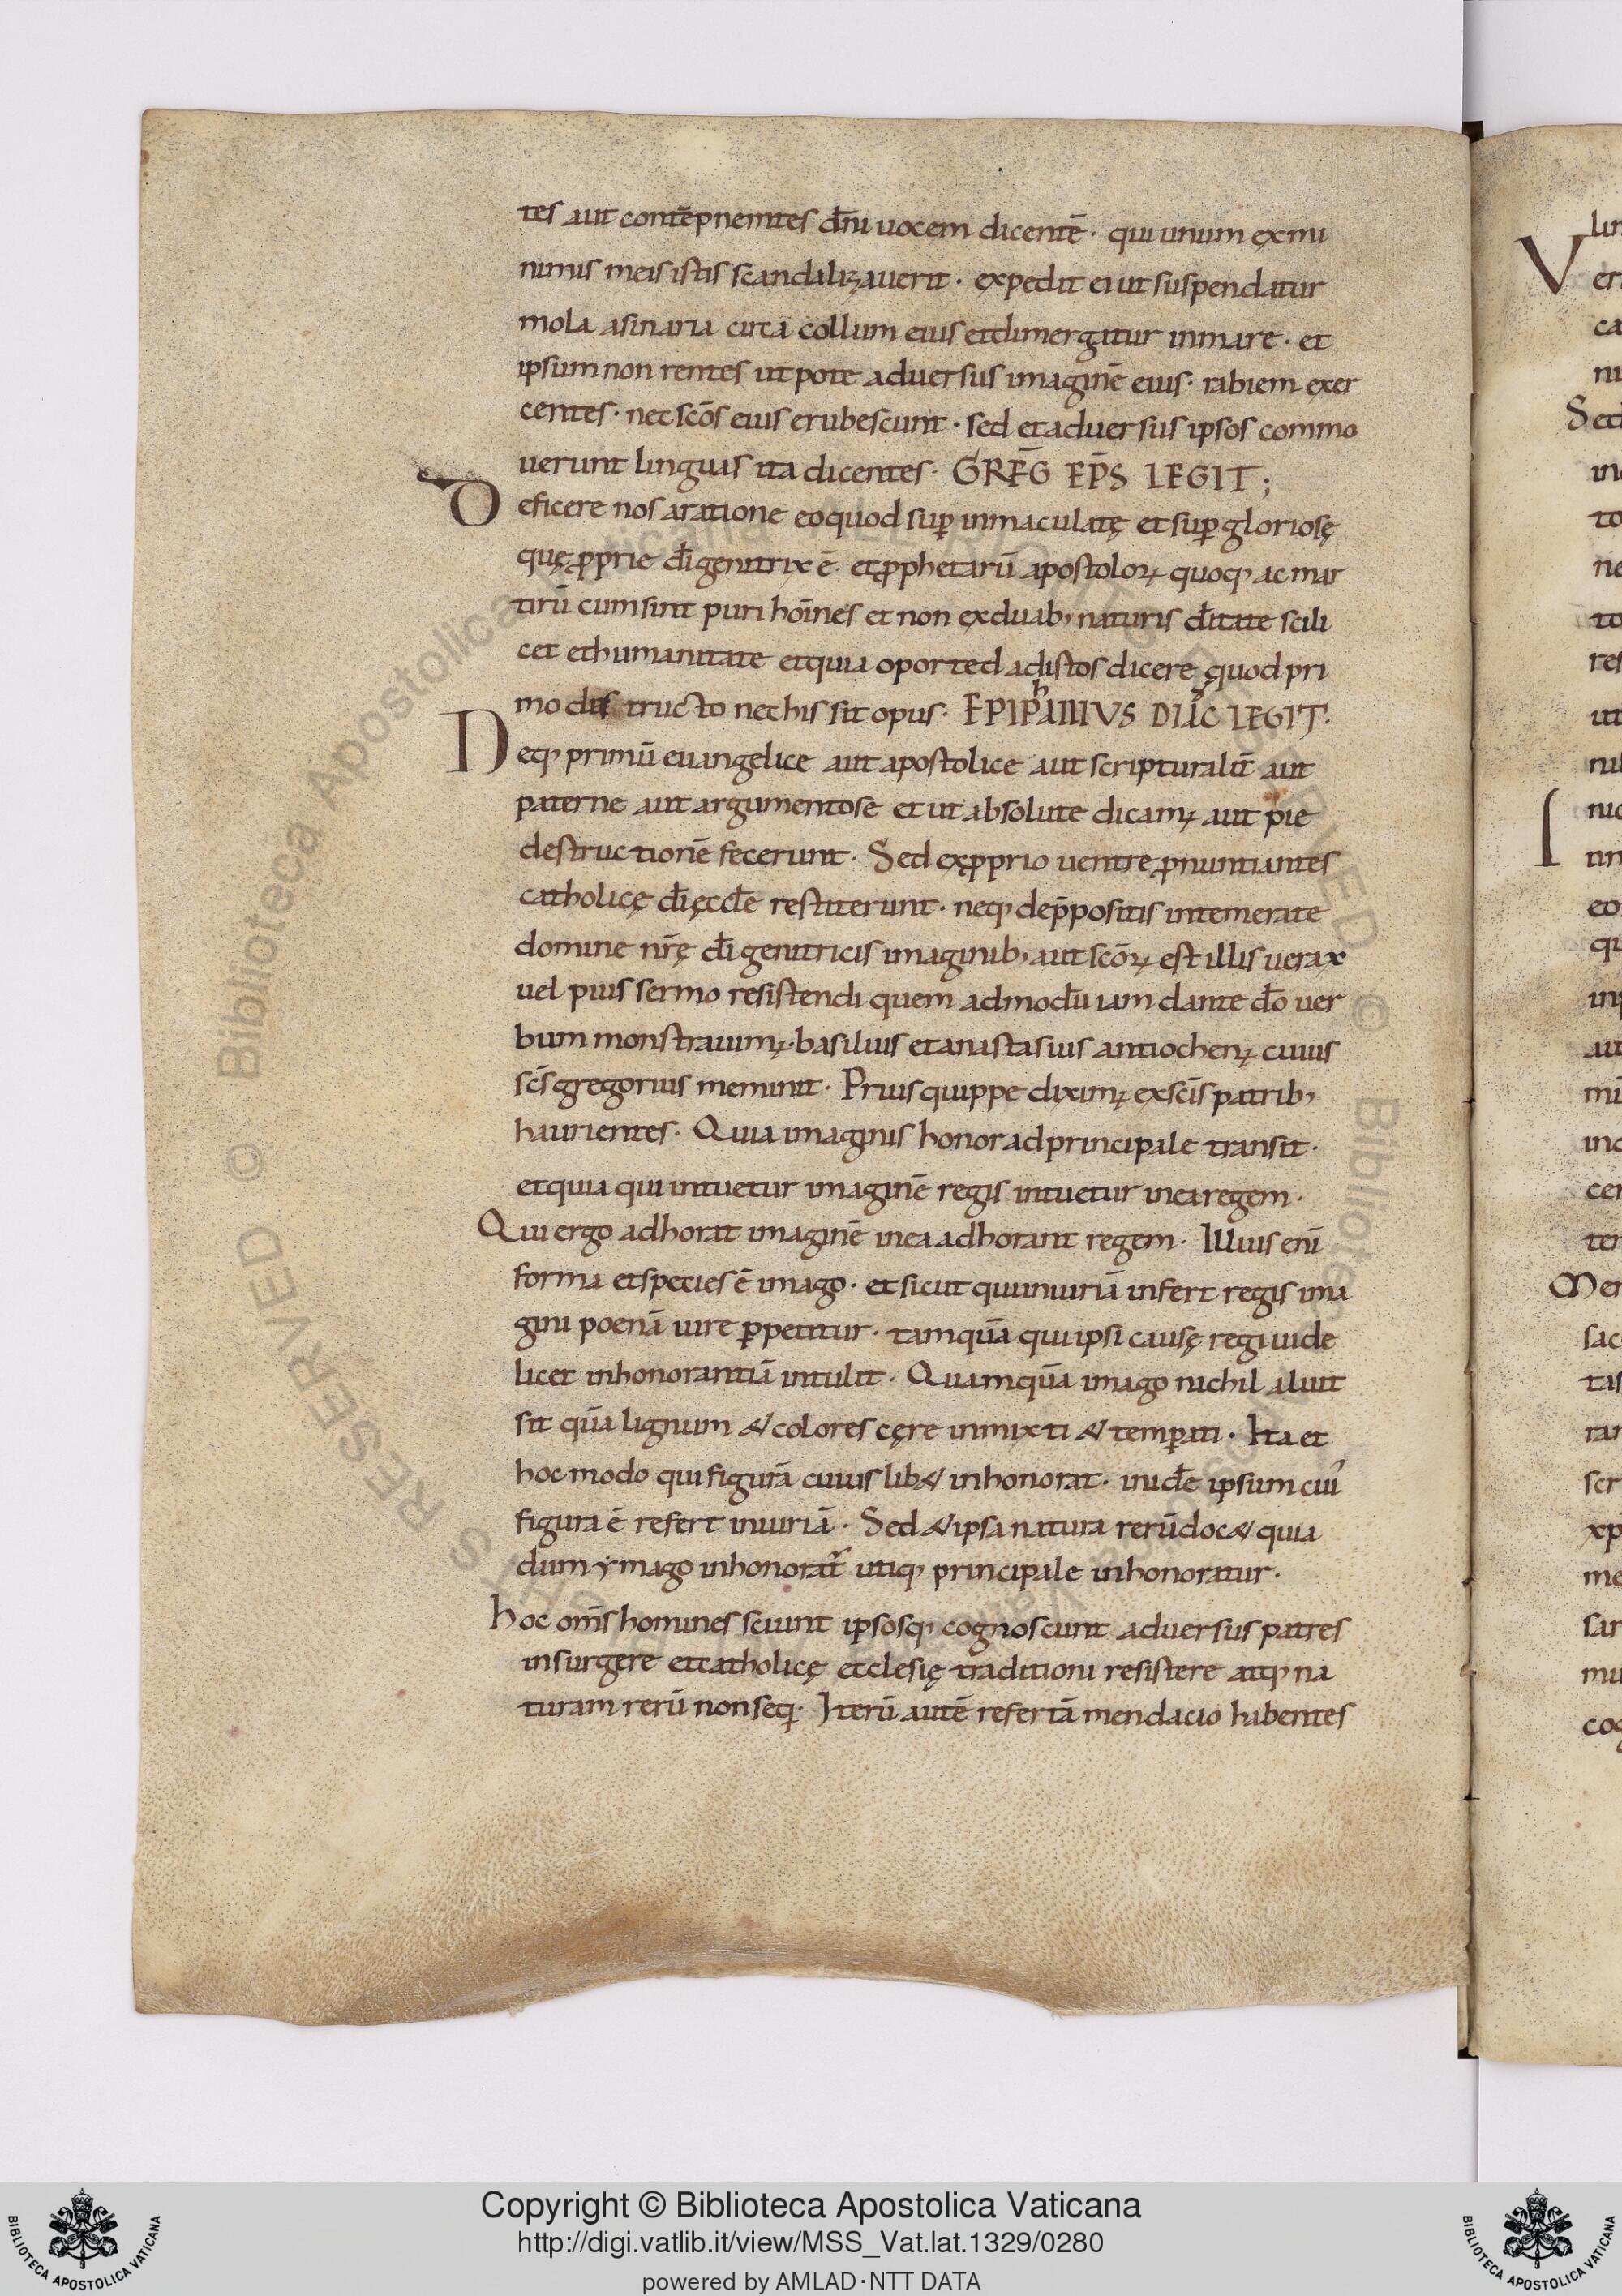 tes aut contēpnemtes dn̄i uocem dicentē· qui unum exmi
nimis meis istis scandalizauerit· expedit ei ut suspendatur
mola asinaria circa collum eius etdimergatur inmare· et
ipsum non rentes utpote aduersus imaginē eius· rabiem exer
centes· nec scōs eius erubescunt· sed etaduersus ipsos commo
uerunt linguis ita dicentes· GREḠ EP̄S LEGIT;
Deficere nos aratione eoquod sup̱ inmaculatę et sup̱ gloriosę
quę ꝓprie dī genitrix ē· et ꝓphetarū apostoloꝝ quoq; ac mar
tirū cum sint puri hoīnes et non exduab; naturis dītate scili
cet ethumanitate etquia oported adistos dicere quod pri
mo dis tructo nec his sit opus· EPIPhANIVS DIAC̄ LEGIT·
Neq; primū euangelice aut apostolice aut scripturalit̄ aut
paterne aut argumentose et ut absolute dicamꝰ aut pie
destructionē fecerunt· Sed exꝓprio uentre ꝓnuntiantes
catholicę dī ęccłe restiterunt· neq; dep̄positis intemerate
domine nr̄ę dī genitricis imaginib; aut scōꝝ est illis uerax
uel pius sermo resistendi quem admodū iam dante dō uer
bum monstrauimꝰ· basilius etanastasius antiochenꝰ cuius
sc̄s gregorius meminit· Prius quippe diximꝰ exsc̄is patrib;
haurientes· Quia imaginis honor adprincipale transit·
etquia qui intuetur imaginē regis intuetur inearegem·
Qui ergo adhorat imaginē inea adhorant regem· Illius enī
forma etspecies ē imago· et sicut qui iniuriā infert regis ima
gini poenā iure ꝑpetitur· tamquā qui ipsi causę regi uide
licet inhonorantiā intulit· Quamquā imago nichil aliut
sit quā lignum & colores cęre inmixti & temꝑati· Ita et
hoc modo qui figurā cuius lib& inhonorat· iniđe ipsum cui'
figura ē refert iniuriā· Sed & ipsa natura rerū doc& quia
dum ymago inhonorat᷑ utiq; principale inhonoratur·
hoc om̄s homines sciunt ipsosq; cognoscunt aduersus patres
insurgere etcatholicę ecclesię traditioni resistere atq; na
turam rerū non seq̄· Iterū autē refertā mendacio habentes
Copyright © Biblioteca Apostolica Vaticana
http://digi.vatlib.it/view/MSS_Vat.lat.1329/0280
powered by AMLAD·NTT DATA